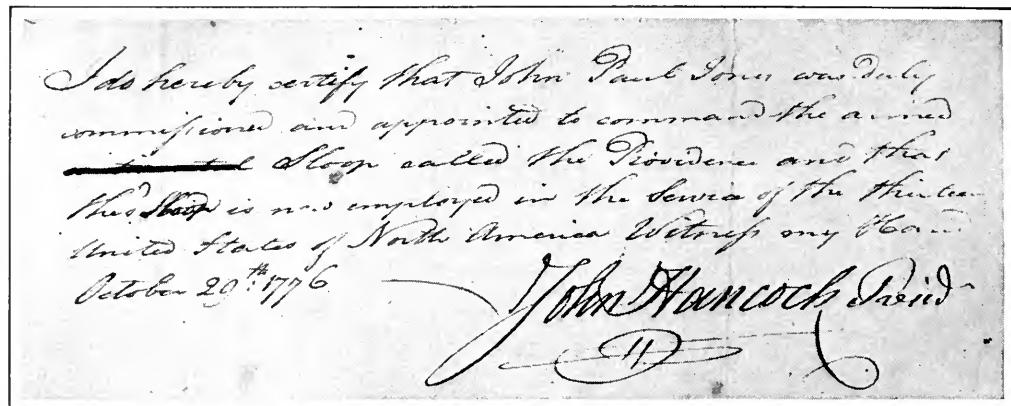 I do hereby certify that John Paul Jones was duly
commissioned and appointed to command the armed
Sloop called the Providence and that
the sd Sloop is now employed in the Service of the thirteen
United States of North America Witness my Hand
October 29th. 1776
John Hancock Presidt